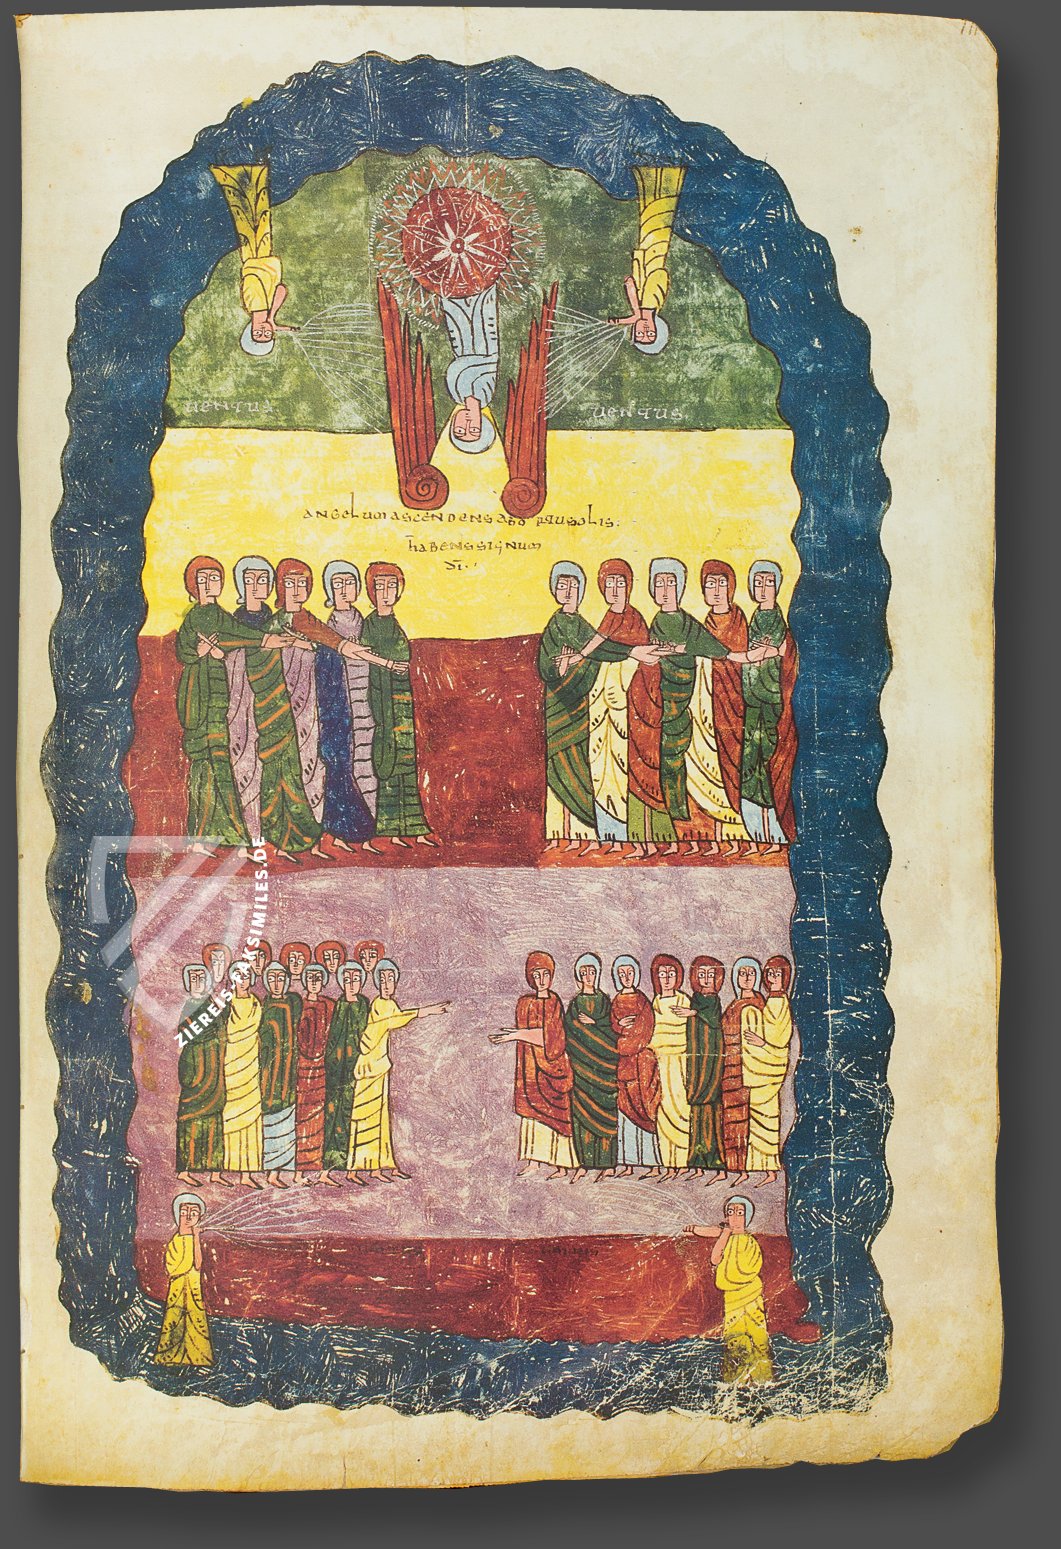 uentus
uentus
angelum ascendens abo rtusolis:
habens signum
di.
ZIEREIS-FAKSIMILES.DE